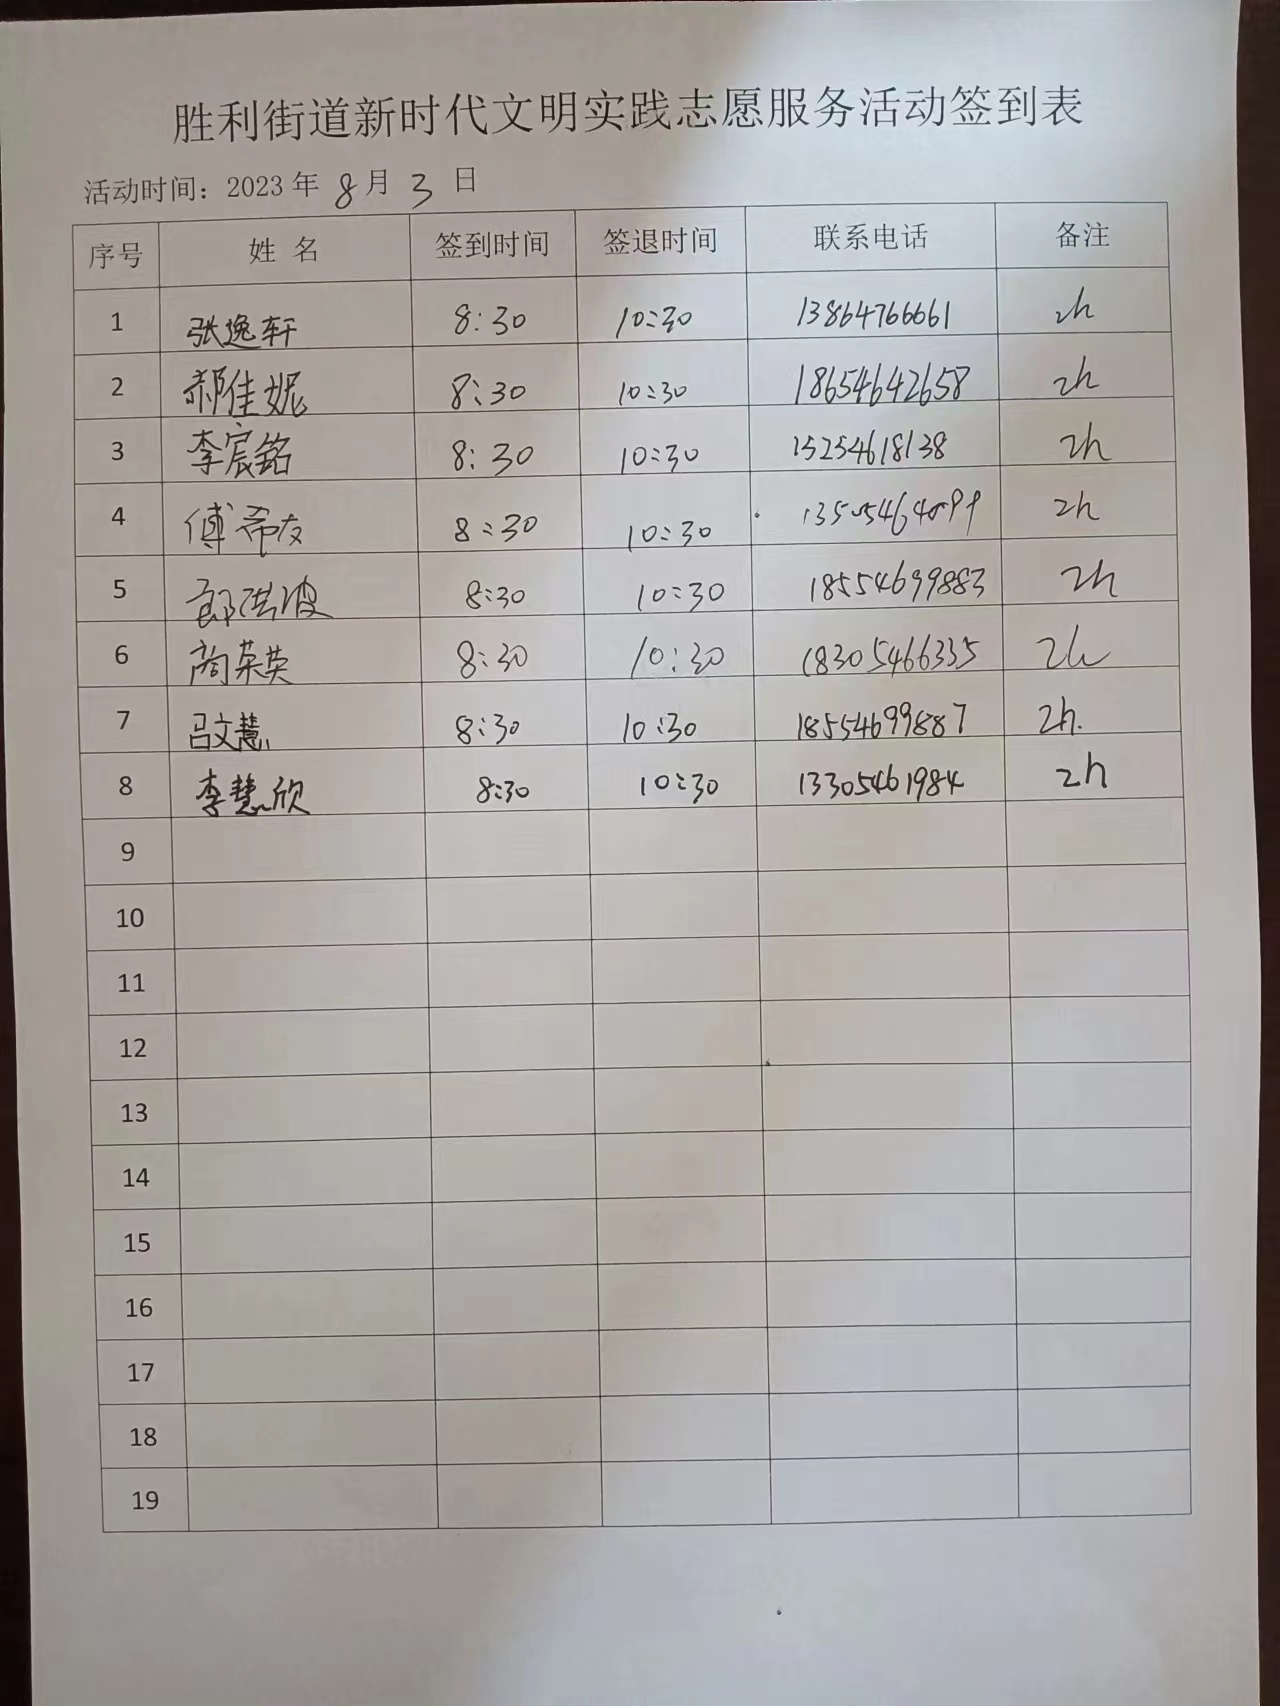 胜利街道新时代文明实践志愿服务活动签到表
活动时间：2023年 8月 3 日
序号 姓 名 签到时间 签退时间 联系电话 备注
1 张逸轩 8:30 10:30 13864766661 2h
2 郝佳妮 8:30 10:30 18654642658 2h
3 李宸铭 8:30 10:30 15254618138 2h
4 傅希友 8:30 10:30 2h
5 8:30 10:30 18554699883 2h
6 尚荣英 8:30 10:30 18305466335 2h
7 吕文慧 8:30 10:30 18554699887 2h.
8 李慧欣 8:30 10:30 13305461984 2h
9
10
11
12
13
14
15
16
17
18
19